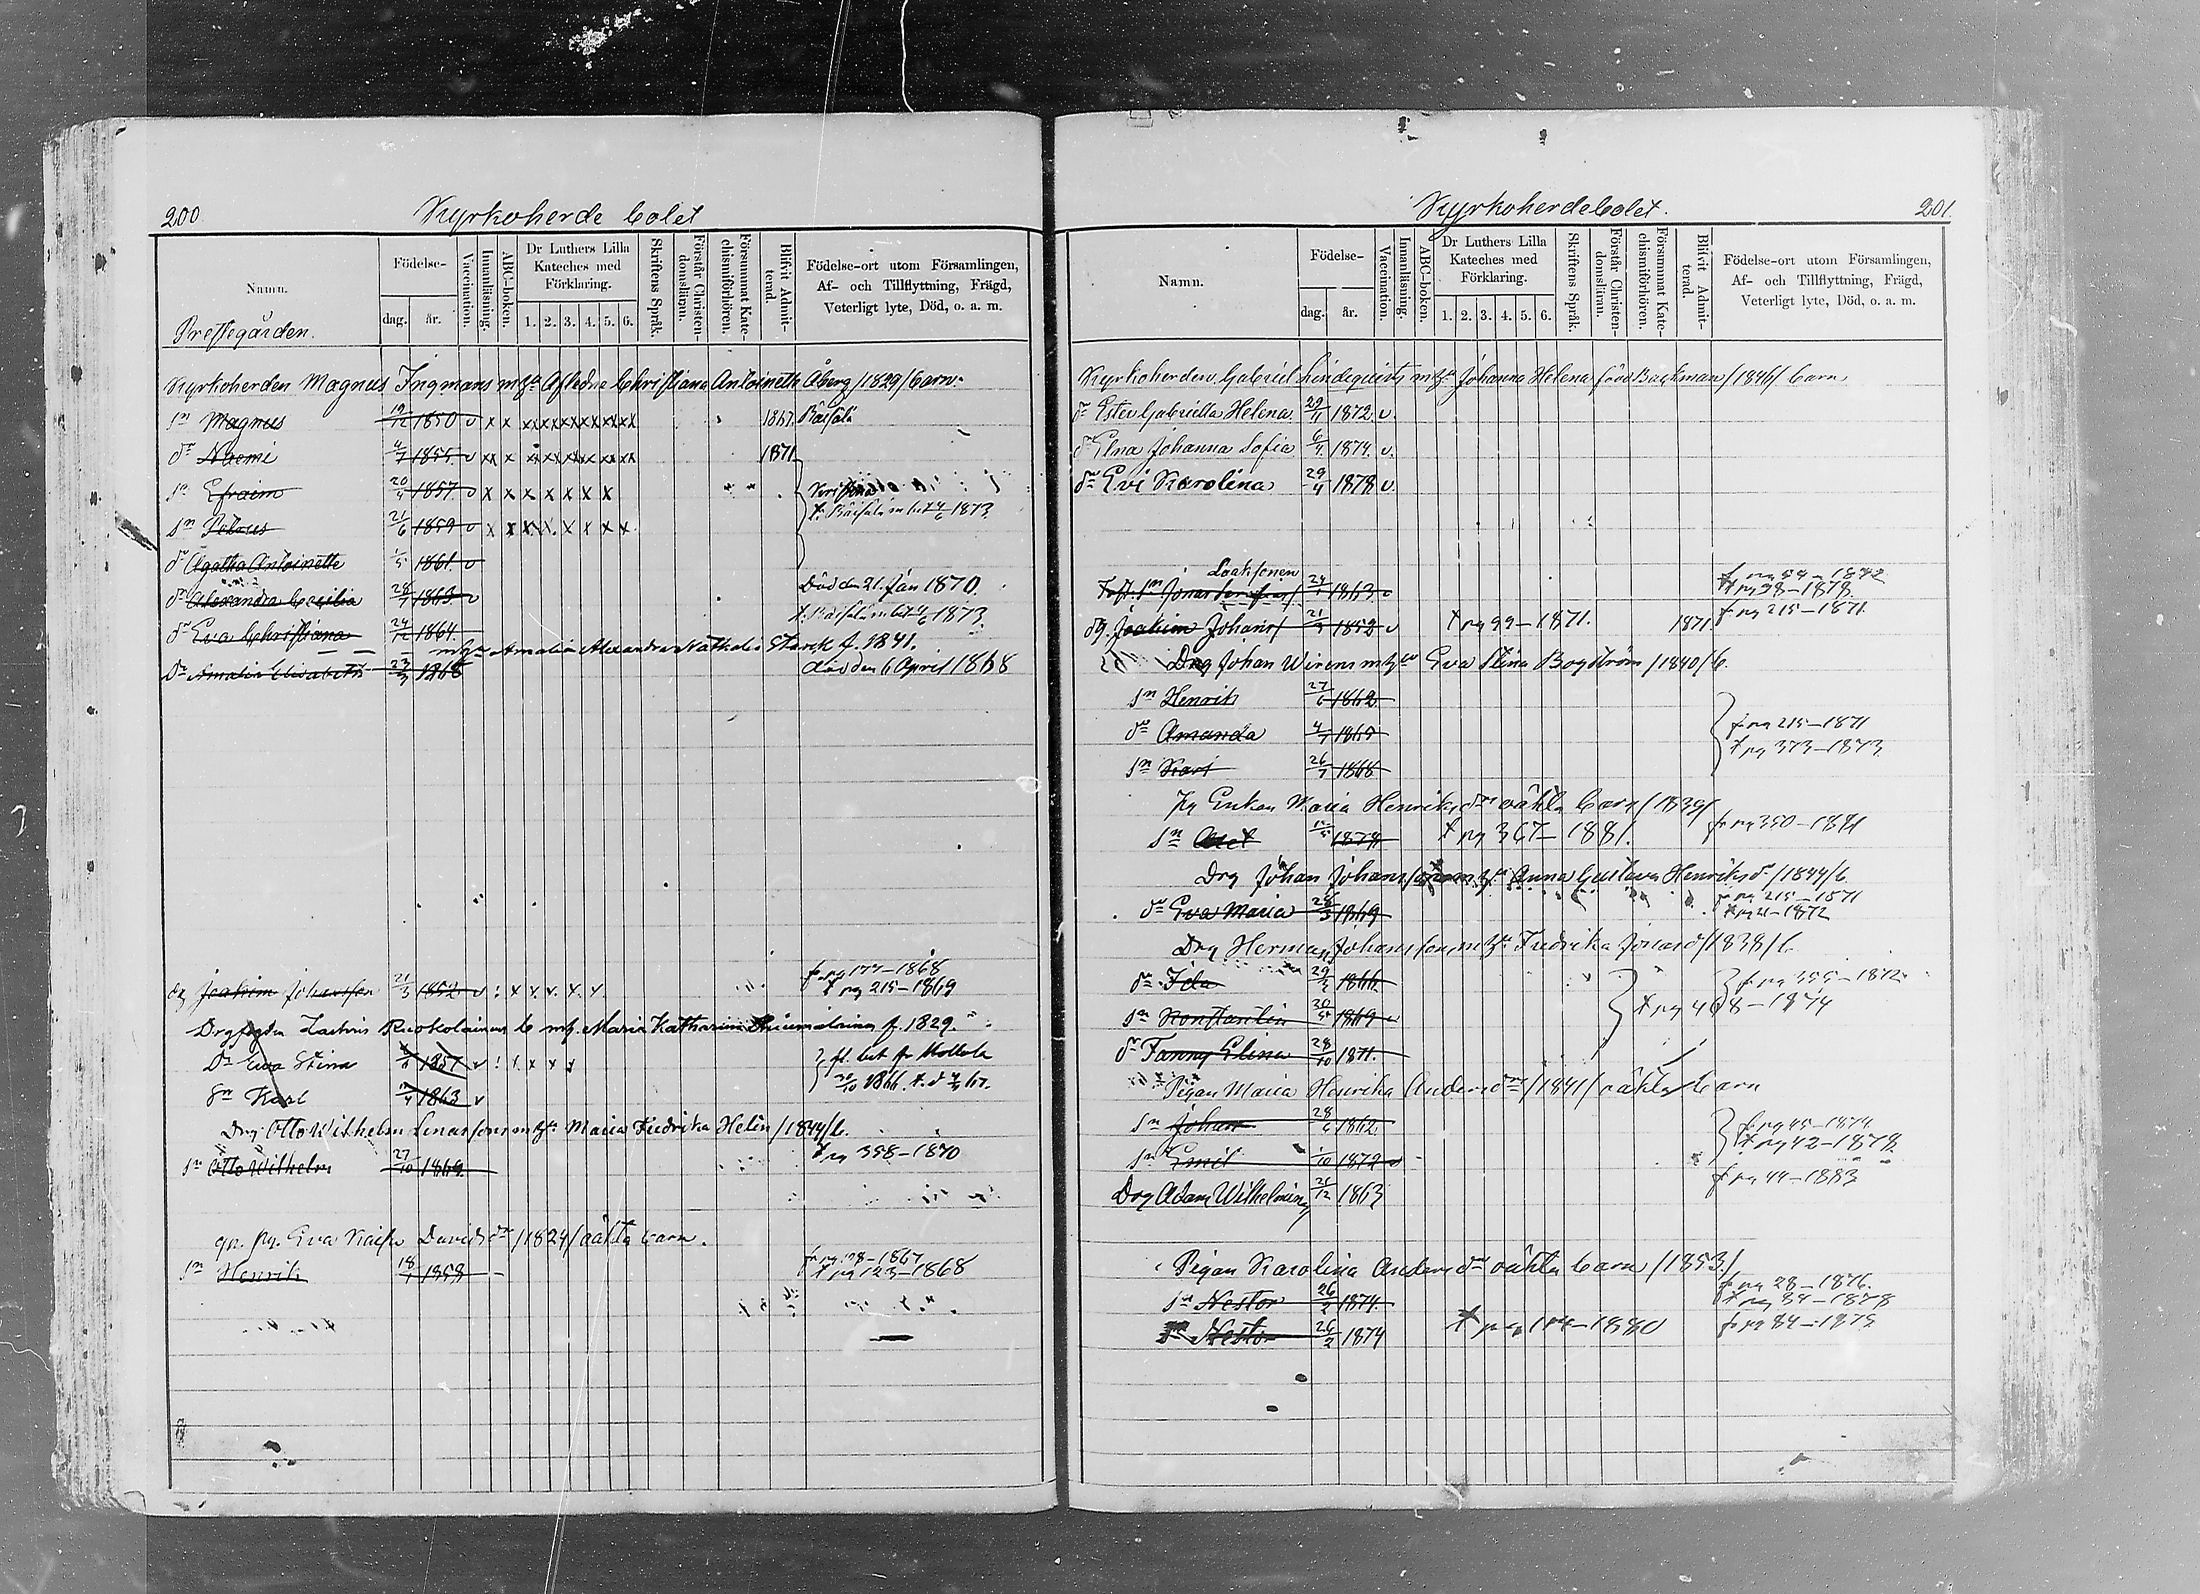 200
Kyrkoherde bolet
Namn.
Prestegården.
Födelse-
dag.
år.
Vaccination.
Innanläsning.
ABC-boken.
Dr Luthers Lilla
Kateches med
Förklaring.
1. 2. 3. 4. 5. 6.
Skriftens Språk.
Förstår Christen-
domsläran.
Försummat Kate-
chismiförhören.
Blifvit Admit-
terad.
Födelse-ort utom Församlingen,
Af- och Tillflyttning, Frägd,
Veterligt lyte, Död, o. a. m.
Kyrkoherden Magnus Ingmans m hu Afledne Christiana Antoinette Åberg /1829/ barn
sn Magnus 19/12 1850 v x x xxxxxxxxxx 1867. Räisälä
dr Naemi 4/7 1855 v xx x 1871
sn Efraim 20/4 1857 v x x x x x x x
sn Petrus 21/6 1859 v x x x x x x x x
t. Räisälä m bet 4/6 1873.
dr Agatha Antoinette 1/5 1861 v
dr Alexandra Cecilia 28/7 1863 v Död den 21. Jan 1870.
dr Eva Christiana 24/12 1864. t. Räisälä m bet 4/6 1873.
m hu Amalia Alexandra Nathalia Starck f. 1841.
dr Amalia Elisabeth 23/3 1868 död den 6 April 1868
dg Joakim Johansson 21/3 1852 v x v. v. x. v. fr pg 177-1868
t pg 215-1869
Drg Ruokolainens b m h. Maria Katharina f. 1829.
Dr Eva Stina 1857 v fl. bet fr Hollola
Sn Karl 1863 v 1866.
Drg Otto Wilhelm Linassons m hu Maria Fredrika Helin /1844/ b.
sn Otto Wilhelm 27/10 1869 t pg 358-1870
gn. pg. Eva Kaisa Davids dr /1824/ oäkta barn.
sn Henrik 18/1 1858 fr pg 128-1867
t pg 123-1868
Kyrkoherdebolet.
201.
Namn.
Födelse-
dag.
år.
Vaccination.
Innanläsning.
ABC-boken.
Dr Luthers Lilla
Kateches med
Förklaring.
1. 2. 3. 4. 5. 6.
Skriftens Språk.
Förstår Christen-
domsläran.
Försummat Kate-
chismiförhören.
Blifvit Admit-
terad.
Födelse-ort utom Församlingen,
Af- och Tillflyttning, Frägd,
Veterligt lyte, Död, o. a. m.
Kyrkoherden Gabriel Lindequists m hu Johanna Helena född Backman /1846/ barn
dr Ester Gabriella Helena 29/11 1872 v.
dr Elna Johanna Sofia 6/4 1874. v.
dr Evi Karolina 29/4 1878 v.
Laaksonen
Fost. sn Jonas 24/1 1863. v
t pg 38-1878.
dg. Joakim Johans 21/3 1852 v t pg 99-1871. 1871. fr pg 215-1871.
Drg Johan Wirens m hu Eva Stina Bogström /1840/ b.
sn Henrik 27/6 1862
dr Amanda 4/7 1865 fr pg 215-1871
t pg 373-1873
sn Karl 26/7 1868
Pg Enkan Maria Henriks drs oäkta barn /1839/
sn Axel 1874 t pg 367-1881. fr pg 350-1881
Drg Johan Johanssons m hu Anna Gustava Henriks dr /1844/ b
dr Eva Maria 26/3 1869 fr pg 215-1871
t pg 21-1872
Drg Herman Johansson m hu Fredrika Jonas d /1838/ b
dr Ida 29/5 1866 fr pg 355-1872
t pg 408-1874
sn Konstantin 1869 v
dr Fanny Elina 28/10 1871.
Pigan Maria Henrika Anders drs /1841/ oäkta barn
sn Johan 28/6 1862 fr pg 45-1874
t pg 42-1878
sn Emil 1/10 1872 v
Drg Adam Wilhelm 21/12 1863 fr pg 44-1883
Pigan Karolina Anders drs oäkta barn /1853/
sn Nestor 26/2 1874. fr pg 28-1876.
t pg 84-1878
sn Nestor 26/2 1874 t pg 174-1880 fr pg 84-1879